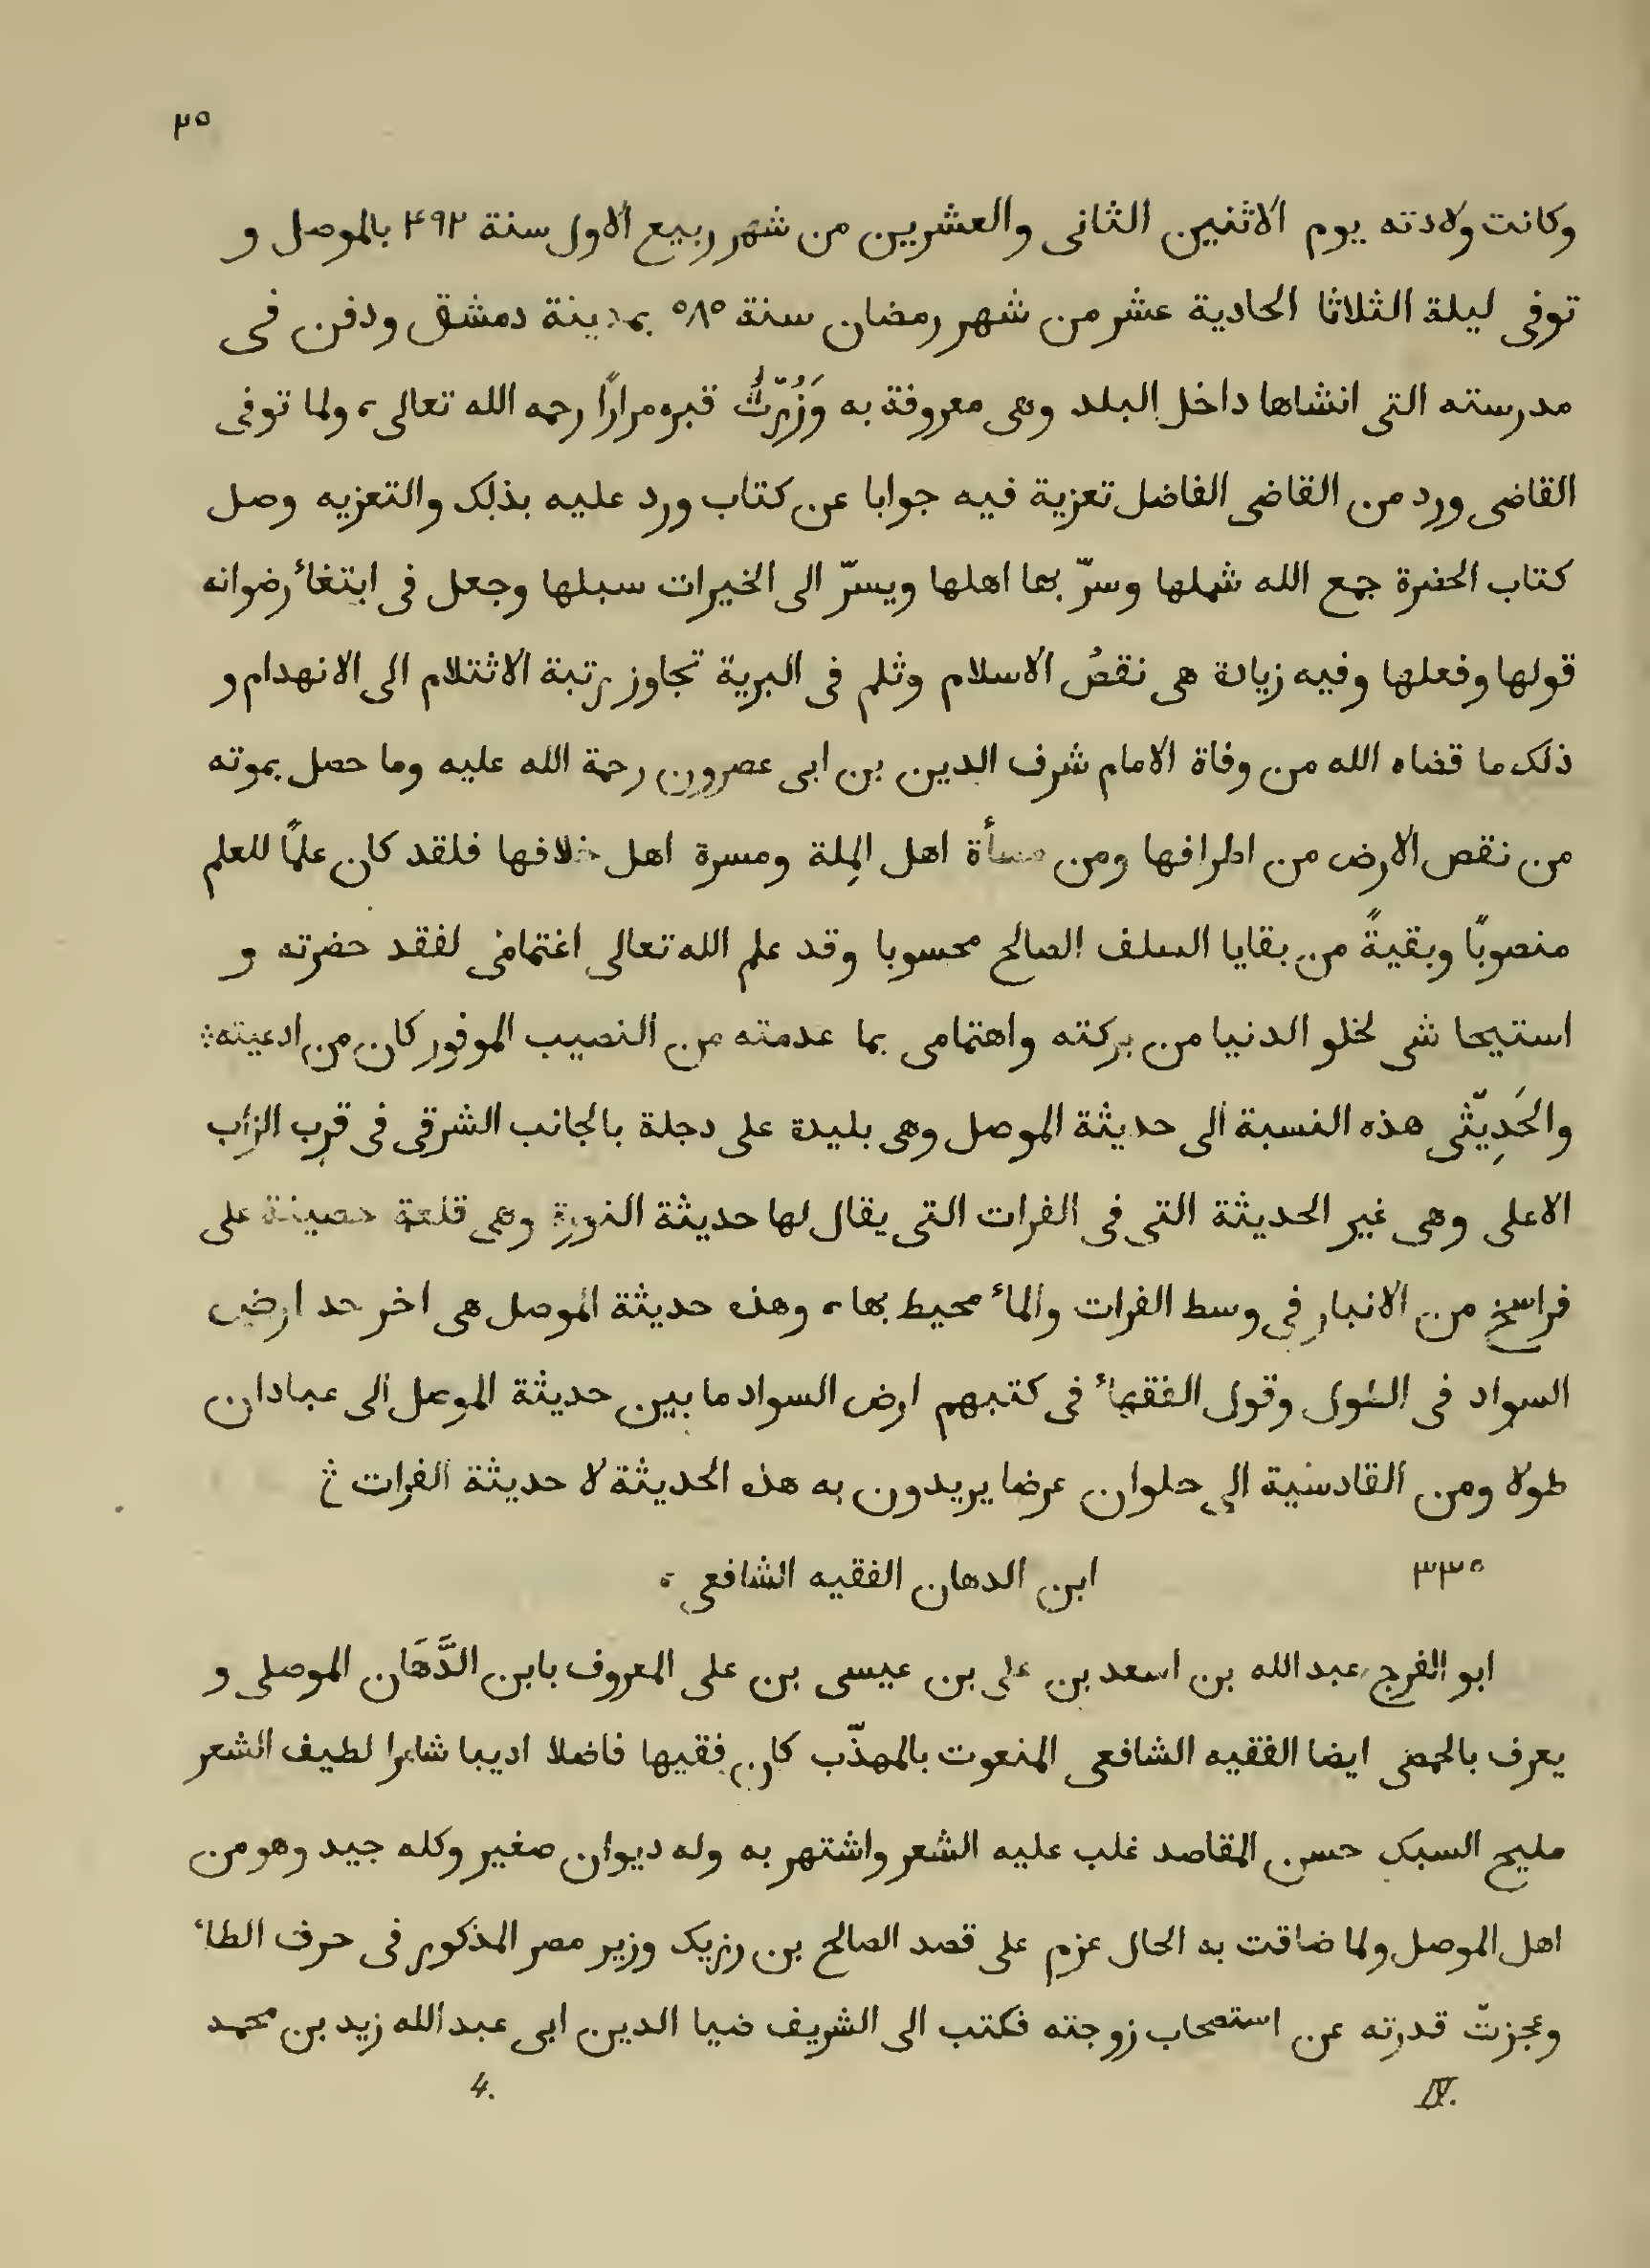 ٢٥
وكانت ولادته يوم الاثنين الثانى والعشرين من شهر ربيع الاول سنة ۴٩٢ بالموصل و
توفى ليلة الثلاثا الحادية عشر من شهر رمضان سنة ٥٨٥ بمدينة دمشق ودفن فى
مدرسته التى انشاها داخل البلد وهى معروفة به وَزُرْتُ قبره مرارًا رحمه الله تعالى، ولما توفى
القاضى ورد من القاضى الفاضل تعزية فيه جوابا عن كتاب ورد عليه بذلك والتعزيه وصل
كتاب الحضرة جمع الله شملها وسرّ بها اهلها ويسرّ الى الخيرات سبلها وجعل فى ابتغاء رضوانه
قولها وفعلها وفيه زيادة هى نقصُ الاسلام وثلم فى البرية تجاوز رتبة الاثتلام الى الانهدام و
ذلك ما قضاه الله من وفاة الامام شرف الدين بن ابى عصرون رحمة الله عليه وما حصل بموته
من نقص الارض من اطرافها ومن مسأة اهل المِلة ومسرة اهل خلافها فلقد كان علمًا للعلم
منصوبًا وبقيةً من بقايا السلف الصالح محسوبا وقد علم الله تعالى اغتمامى لفقد حضرته و
استيحا شى لخلو الدنيا من بركته واهتمامى بما عدمته من النصيب الموفور كان من ادعيته
والحَدِيثى هذه النسبة الى حديثة الموصل وهى بليدة على دجلة بالجانب الشرقى فى قرب الزاب
الاعلى وهى غير الحديثة التى فى الفرات التى يقال لها حديثة النورة وهى قلعة حصينة على
فراسخ من الانبار فى وسط الفرات والماء محيط بها، وهذه حديثة الموصل هى اخر حد ارض
السواد فى الطول وقول الفقهاء فى كتبهم ارض السواد ما بين حديثة الموصل الى عبادان
طولا ومن القادسية الى حلوان عرضا يريدون به هذه الحديثة لا حديثة الفرات
٣٣٥ ابن الدهان الفقيه الشافعى،
ابو الفرج عبد الله بن اسعد بن على بن عيسى بن على المعروف بابن الدَّهَان الموصلى و
يعرف بالحمصى ايضا الفقيه الشافعى المنعوت بالمهذّب كان فقيها فاضلا اديبا شاعرا لطيف الشعر
مليح السبك حسن المقاصد غلب عليه الشعر واشتهر به وله ديوان صغير وكله جيد وهو من
اهل الموصل ولما ضاقت به الحال عزم على قصد الصالح بن رزيك وزير مصر المذكور فى حرف الطاء
وعجزتّ قدرته عن استصحاب زوجته فكتب الى الشريف ضيا الدين ابى عبد الله زيد بن محمد
IV. 4.